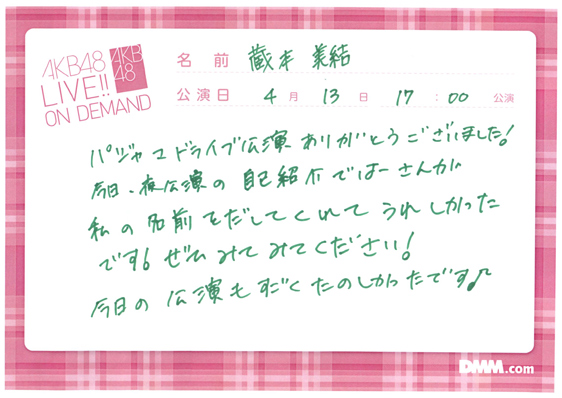 AKB48
LIVE!!
ON DEMAND
AKB
48
名前 蔵本 美結
公演日 4月13日 17:00 公演
パジャマドライブ公演ありがとうございました!
今日、夜公演の自己紹介でばーさんが
私の名前をだしてくれてうれしかった
です!ぜひみてみてください!
今日の公演もすごくたのしかったです♪
DMM.com